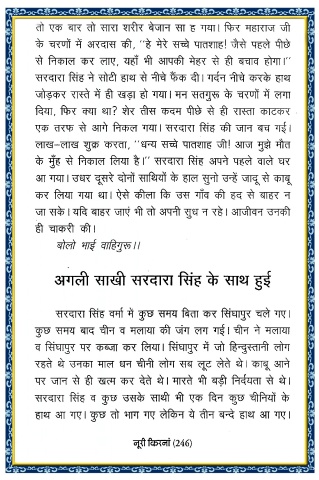 तो एक बार तो सारा शरीर बेजान सा ह गया। फिर महाराज जी
के चरणों में अरदास की, "हे मेरे सच्चे पातशाह! जैसे पहले पीछे
से निकाल कर लाए, यहाँ भी आपकी मेहर से ही बचाव होगा।"
सरदारा सिंह ने सोटी हाथ से नीचे फैंक दी। गर्दन नीचे करके हाथ
जोड़कर रास्ते में ही खड़ा हो गया। मन सतगुरू के चरणों में लगा
दिया, फिर क्या था? शेर तीस कदम पीछे से ही रास्ता काटकर
एक तरफ से आगे निकल गया। सरदारा सिंह की जान बच गई।
लाख-लाख शुक्र करता, "धन्य सच्चे पातशाह जी! आज मुझे मौत
के मुँह से निकाल लिया है।" सरदारा सिंह अपने पहले वाले घर
आ गया। उधर दूसरे दोनों साथियों के हाल सुनो उन्हें जादू से काबू
कर लिया गया था। ऐसे कीला कि उस गाँव की हद से बाहर न
जा सके। यदि बाहर जाएं भी तो अपनी सुध न रहे। आजीवन उनकी
ही चाकरी की।
बोलो भाई वाहिगुरू।।
अगली साखी सरदारा सिंह के साथ हुई
सरदारा सिंह वर्मा में कुछ समय बिता कर सिंघापुर चले गए।
कुछ समय बाद चीन व मलाया की जंग लग गई। चीन ने मलाया
व सिंघापुर पर कब्जा कर लिया। सिंघापुर में जो हिन्दुस्तानी लोग
रहते थे उनका माल धन चीनी लोग सब लूट लेते थे। काबू आने
पर जान से ही खत्म कर देते थे। मारते भी बड़ी निर्दयता से थे।
सरदारा सिंह व कुछ उसके साथी भी एक दिन कुछ चीनियों के
हाथ आ गए। कुछ तो भाग गए लेकिन ये तीन बन्दे हाथ आ गए।
नूरी किरनां (246)